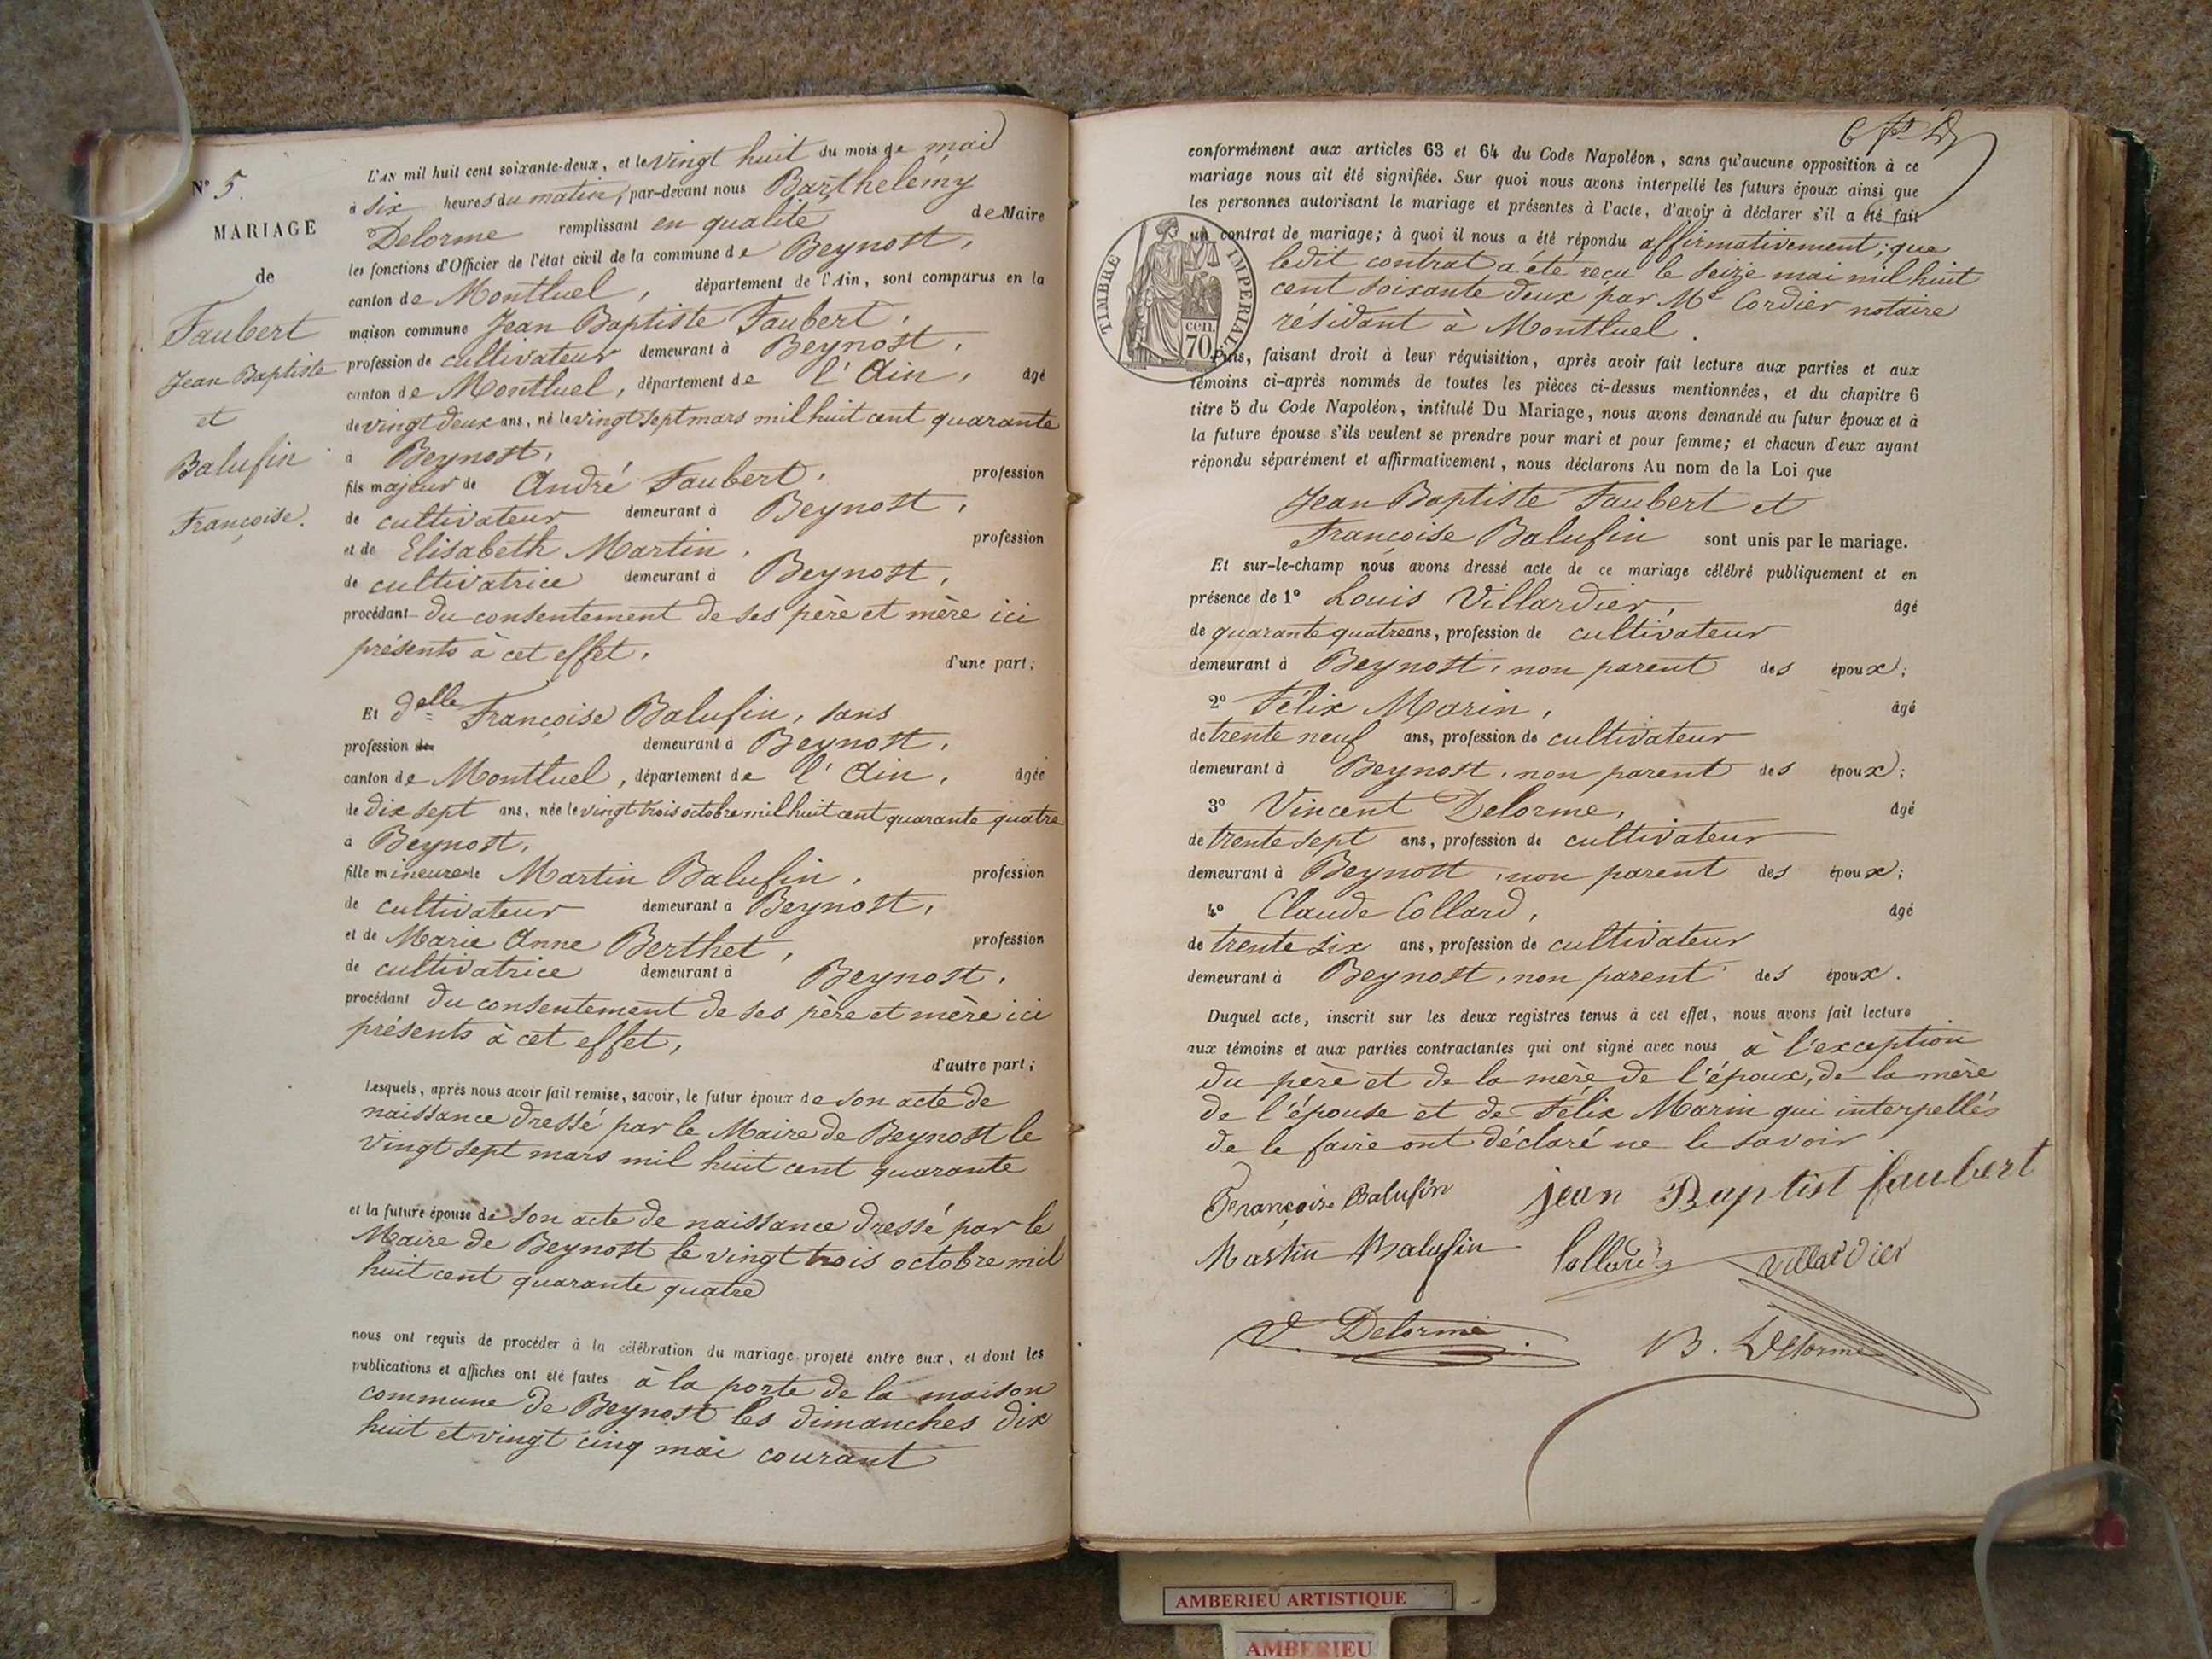 N° 5.
MARIAGE
de
Faubert
Jean Baptiste
et
Balufin
Françoise.
L'AN mil huit cent soixante-deux, et le vingt huit du mois de mai
à six heures du matin, par-devant nous Barthelemy
Delorme remplissant en qualité de Maire
les fonctions d'Officier de l'état civil de la commune de Beynost,
canton de Montluel, département de l'Ain, sont comparus en la
maison commune Jean Baptiste Faubert,
profession de cultivateur demeurant à Beynost,
canton de Montluel, département de l'Ain, âgé
de vingt deux ans, né le vingt sept mars mil huit cent quarante
à Beynost,
fils majeur de André Faubert, profession
de cultivateur demeurant à Beynost,
et de Elisabeth Martin, profession
de cultivatrice demeurant à Beynost,
procédant du consentement de ses père et mère ici
présents à cet effet, d'une part;
Et delle Françoise Balufin, sans
profession de demeurant à Beynost,
canton de Montluel, département de l'Ain, âgée
de dix sept ans, née le vingt trois octobre mil huit cent quarante quatre
à Beynost,
fille mineure de Martin Balufin, profession
de cultivateur demeurant à Beynost,
et de Marie Anne Berthet, profession
de cultivatrice demeurant à Beynost,
procédant du consentement de ses père et mère ici
présents à cet effet,
d'autre part;
Lesquels, après nous avoir fait remise, savoir, le futur époux de son acte de
naissance dressé par le Maire de Beynost le
vingt sept mars mil huit cent quarante
et la future épouse de son acte de naissance dressé par le
Maire de Beynost le vingt trois octobre mil
huit cent quarante quatre
nous ont requis de procéder à la célébration du mariage projeté entre eux, et dont les
publications et affiches ont été faites à la porte de la maison
commune de Beynost les dimanches dix
huit et vingt cinq mai courant
conformément aux articles 63 et 64 du Code Napoléon, sans qu'aucune opposition à ce
mariage nous ait été signifiée. Sur quoi nous avons interpellé les futurs époux ainsi que
les personnes autorisant le mariage et présentes à l'acte, d'avoir à déclarer s'il a été fait
un contrat de mariage; à quoi il nous a été répondu affirmativement; que
ledit contrat a été reçu le seize mai mil huit
cent soixante deux par Me Cordier notaire
résidant à Montluel.
TIMBRE IMPERIAL
70 cen.
Puis, faisant droit à leur réquisition, après avoir fait lecture aux parties et aux
témoins ci-après nommés de toutes les pièces ci-dessus mentionnées, et du chapitre 6
titre 5 du Code Napoléon, intitulé Du Mariage, nous avons demandé au futur époux et à
la future épouse s'ils veulent se prendre pour mari et pour femme; et chacun d'eux ayant
répondu séparément et affirmativement, nous déclarons Au nom de la Loi que
Jean Baptiste Faubert et
Françoise Balufin sont unis par le mariage.
Et sur-le-champ nous avons dressé acte de ce mariage célébré publiquement et en
présence de 1° Louis Villardier, âgé
de quarante quatre ans, profession de cultivateur
demeurant à Beynost, non parent des époux;
2° Félix Marin, âgé
de trente neuf ans, profession de cultivateur
demeurant à Beynost, non parent des époux;
3° Vincent Delorme, âgé
de trente sept ans, profession de cultivateur
demeurant à Beynost, non parent des époux;
4° Claude Collard, âgé
de trente six ans, profession de cultivateur
demeurant à Beynost, non parent des époux.
Duquel acte, inscrit sur les deux registres tenus à cet effet, nous avons fait lecture
aux témoins et aux parties contractantes qui ont signé avec nous à l'exception
du père et de la mère de l'époux, de la mère
de l'épouse et de Félix Marin qui interpellés
de le faire ont déclaré ne le savoir
Françoise Balufin jean Baptist faubert
Martin Balufin Collard villardier
V. Delorme B. Delorme
AMBERIEU ARTISTIQUE
AMBERIEU